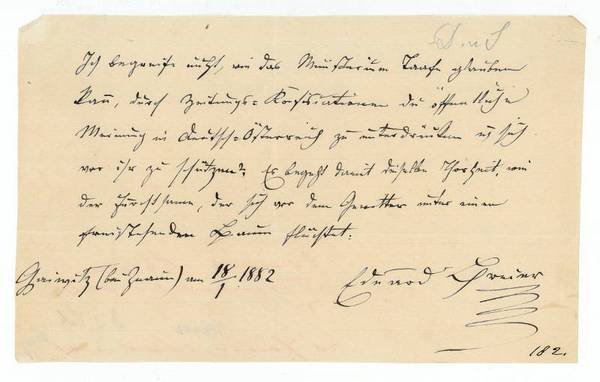 Ich begreife nicht, wie das Ministerium Taafe glauben
kann, durch Zeitungs=Konfiskationen die öffentliche
Meinung in Deutsch=Österreich zu unterdrücken u sich
vor ihr zu schützen? Es begeht damit dieselbe Thorheit, wie
der Furchtsame, der sich vor dem Gewitter unter einen
freistehenden Baum flüchtet.
(bei Znaim) am 18/1 1882
Eduard Breier
182.